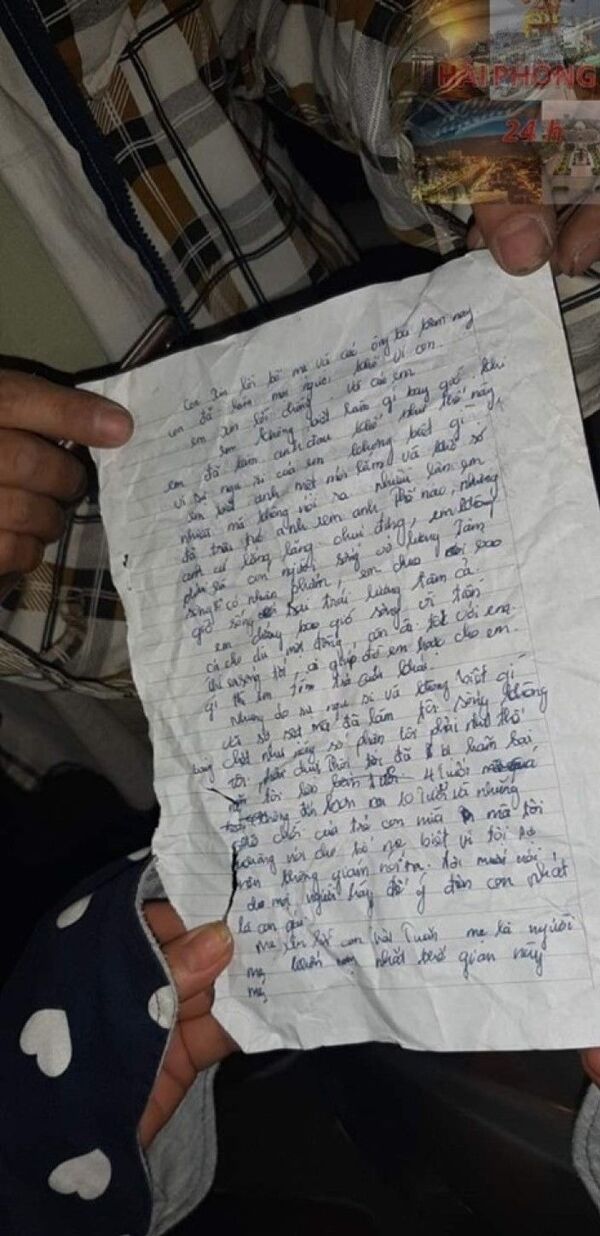 HẢI PHÒNG
24 h
Con xin lỗi bố mẹ và các ông bà hôm nay
con đã làm mọi người khổ vì con.
em xin lỗi chồng và các em
em không biết làm gì bây giờ khi
em đã làm anh đau khổ như thế này,
vì sự ngu si của em không biết gì
em biết anh mệt mỏi lắm và khổ sở
nhiều mà không nói ra nhiều lần em
đã anh xem anh thế nào, nhưng
anh cứ lẳng lặng chịu đựng, em không
phải là con người sống vô lương tâm
sống có nhân phẩm, em chưa bao
giờ sống sai trái lương tâm cả.
em chẳng bao giờ sống vì tiền
cả cho dù một đồng, cần ai tốt với em
thì sương tới ai giúp đỡ em hay cho em
gì thì em tìm trả
nhưng do sự ngu si và không biết gì
và sợ sệt mà đã làm tôi sống không
bằng chết như này số phận tôi phải như thế
tôi phải chết Thân tôi đã bị hãm hại
tôi lúc 4 tuổi
đến hơn 10 tuổi và những
trò chơi của trẻ con mà tôi
không nói cho bố mẹ biết vì tôi sợ
nên không giám nói ra. tôi muốn nói
cho mọi người hãy để ý đến con nhất
là con gái
Mẹ xin lỗi con Tuấn mẹ là người
mẹ nhất thế gian này
mẹ